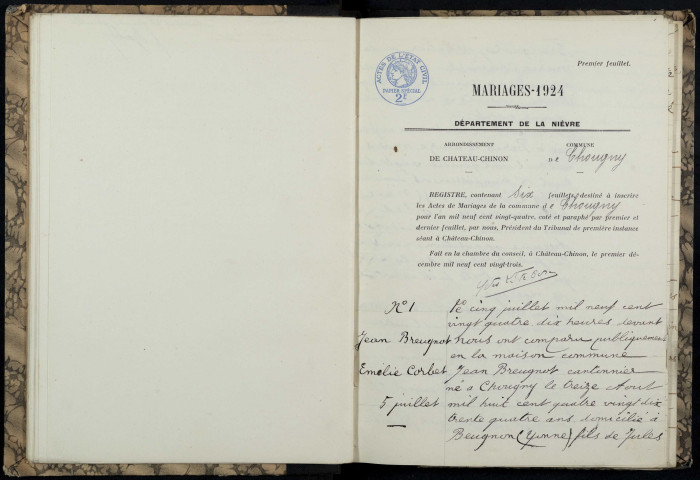 Premier feuillet.
ACTES DE L'ÉTAT CIVIL
PAPIER SPÉCIAL
2F
MARIAGES-1924
DÉPARTEMENT DE LA NIÈVRE
ARRONDISSEMENT
DE CHATEAU-CHINON
COMMUNE
de Chougny
REGISTRE, contenant Six feuillets, destiné à inscrire
les Actes de Mariages de la commune de Chougny
pour l'an mil neuf cent vingt-quatre, coté et paraphé par premier et
dernier feuillet, par nous, Président du Tribunal de première instance
séant à Château-Chinon.
Fait en la chambre du conseil, à Château-Chinon, le premier dé-
cembre mil neuf cent vingt-trois.
N° 1
Jean Breugnot
Emélie Corbet
5 juillet
Le cinq juillet mil neuf cent
vingt quatre dix heures, devant
nous ont comparu publiquement
en la maison commune
Jean Breugnot cantonnier
né à Chougny le treize Aout
mil huit cent quatre vingt dix
trente quatre ans, domicilié à
Beugnon (Yonne) fils de Jules